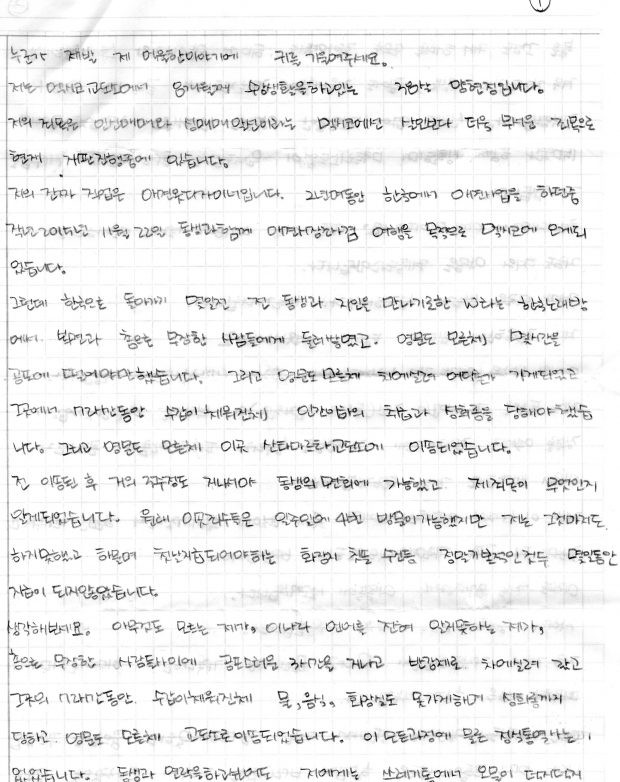 ①
누군가 제발 제 억울한이야기에 귀를 기울여주세요.
저는 멕시코교도소에서 8개월째 수감생활을하고있는 38살 양현정입니다.
저의 죄목은 인신매매와 성매매 알선이라는 멕시코에선 살인보다 더욱 무거운 죄목으로
현재 재판진행중에 있습니다.
저의 진짜 직업은 애견옷디자이너입니다. 한국에서 애견사업을 하던중
작년2015년 11월 22일 동생과함께 여행을 목적으로 멕시코에 오게되
었습니다.
그런데 한국으로 돌아가기 몇일전 전 동생과 지인을 만나기로한 W라는 한국노래방
에서 복면과 총으로 무장한 사람들에게 둘러쌓였고. 영문도 모른체 몇시간을
공포에 떨어야만했습니다. 그리고 영문도 모른체 차에실려 어디론가 가게되었고
그곳에서 시간동안 수갑이채워진체 인간이하의 취급과 성희롱을 당해야했습
니다. 그리고 영문도 모른체 이곳 산타마르타교도소에 이동되었습니다.
전 이동된 후 거의 지나서야 동생의 면회에 가능했고 제죄목이 무엇인지
알게되었습니다. 원래 일주일에 4번 방문이가능했지만 저는 그런마저도
하지못했고 하물며 첫날지급되어야하는 화장지 칫솔 수건등 정말기본적인것도 몇일동안
지급이 되지않았습니다.
생각해보세요. 아무것도 모르는 제가, 이나라 언어를 전혀 알지못하는 제가,
총으로 무장한 사람들사이에 공포스러운 시간을 지나고 반강제로 차에실려 갔고
시간동안 수갑이채워진체 물, 음식, 화장실도 못가게하며 성희롱까지
당하고 영문도 모른체 교도소로이동되었습니다. 이 모든과정에 물론 정식통역사는
없었습니다. 동생과 연락을하고싶어도 저에게는